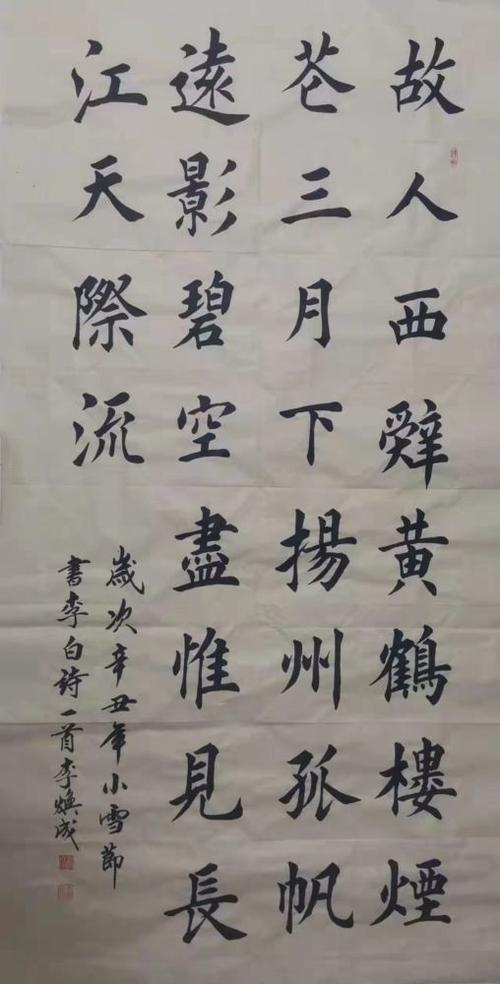 故人西辭黃鶴樓煙
花三月下揚州孤帆
遠影碧空盡惟見長
江天際流
歲次辛丑年小雪節
書李白詩一首李煥成